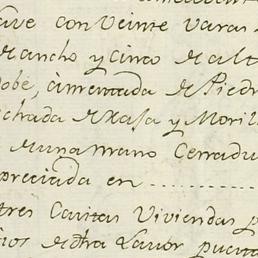 Nave con Veinte Varas
de ancho y cinco de alt
dobe, àmentada de Piedr
echada de Xasa y Moril
de una mano Cerradu
apreciada en ..........
tres Casitas Viviendas p
rios de dha Lavor puert